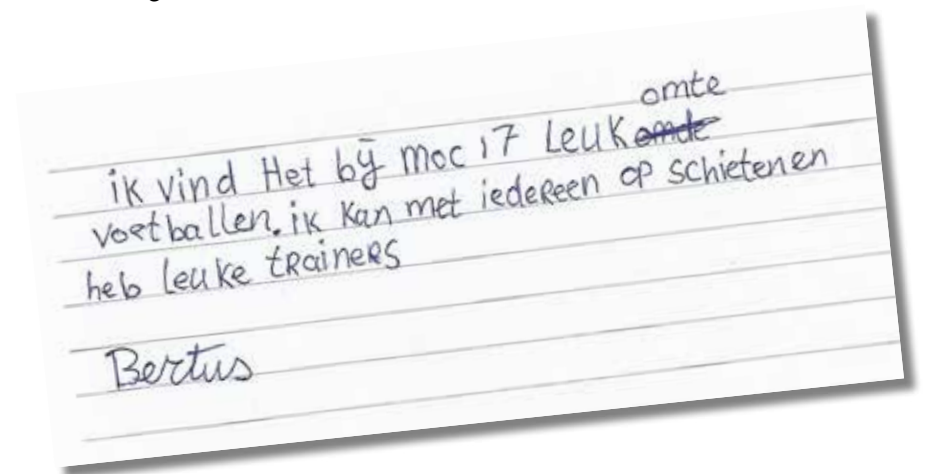 omte
ik vind Het bij moc 17 leuk omde
voetballen. ik kan met iedereen op schieten en
heb leuke trainers
Bertus